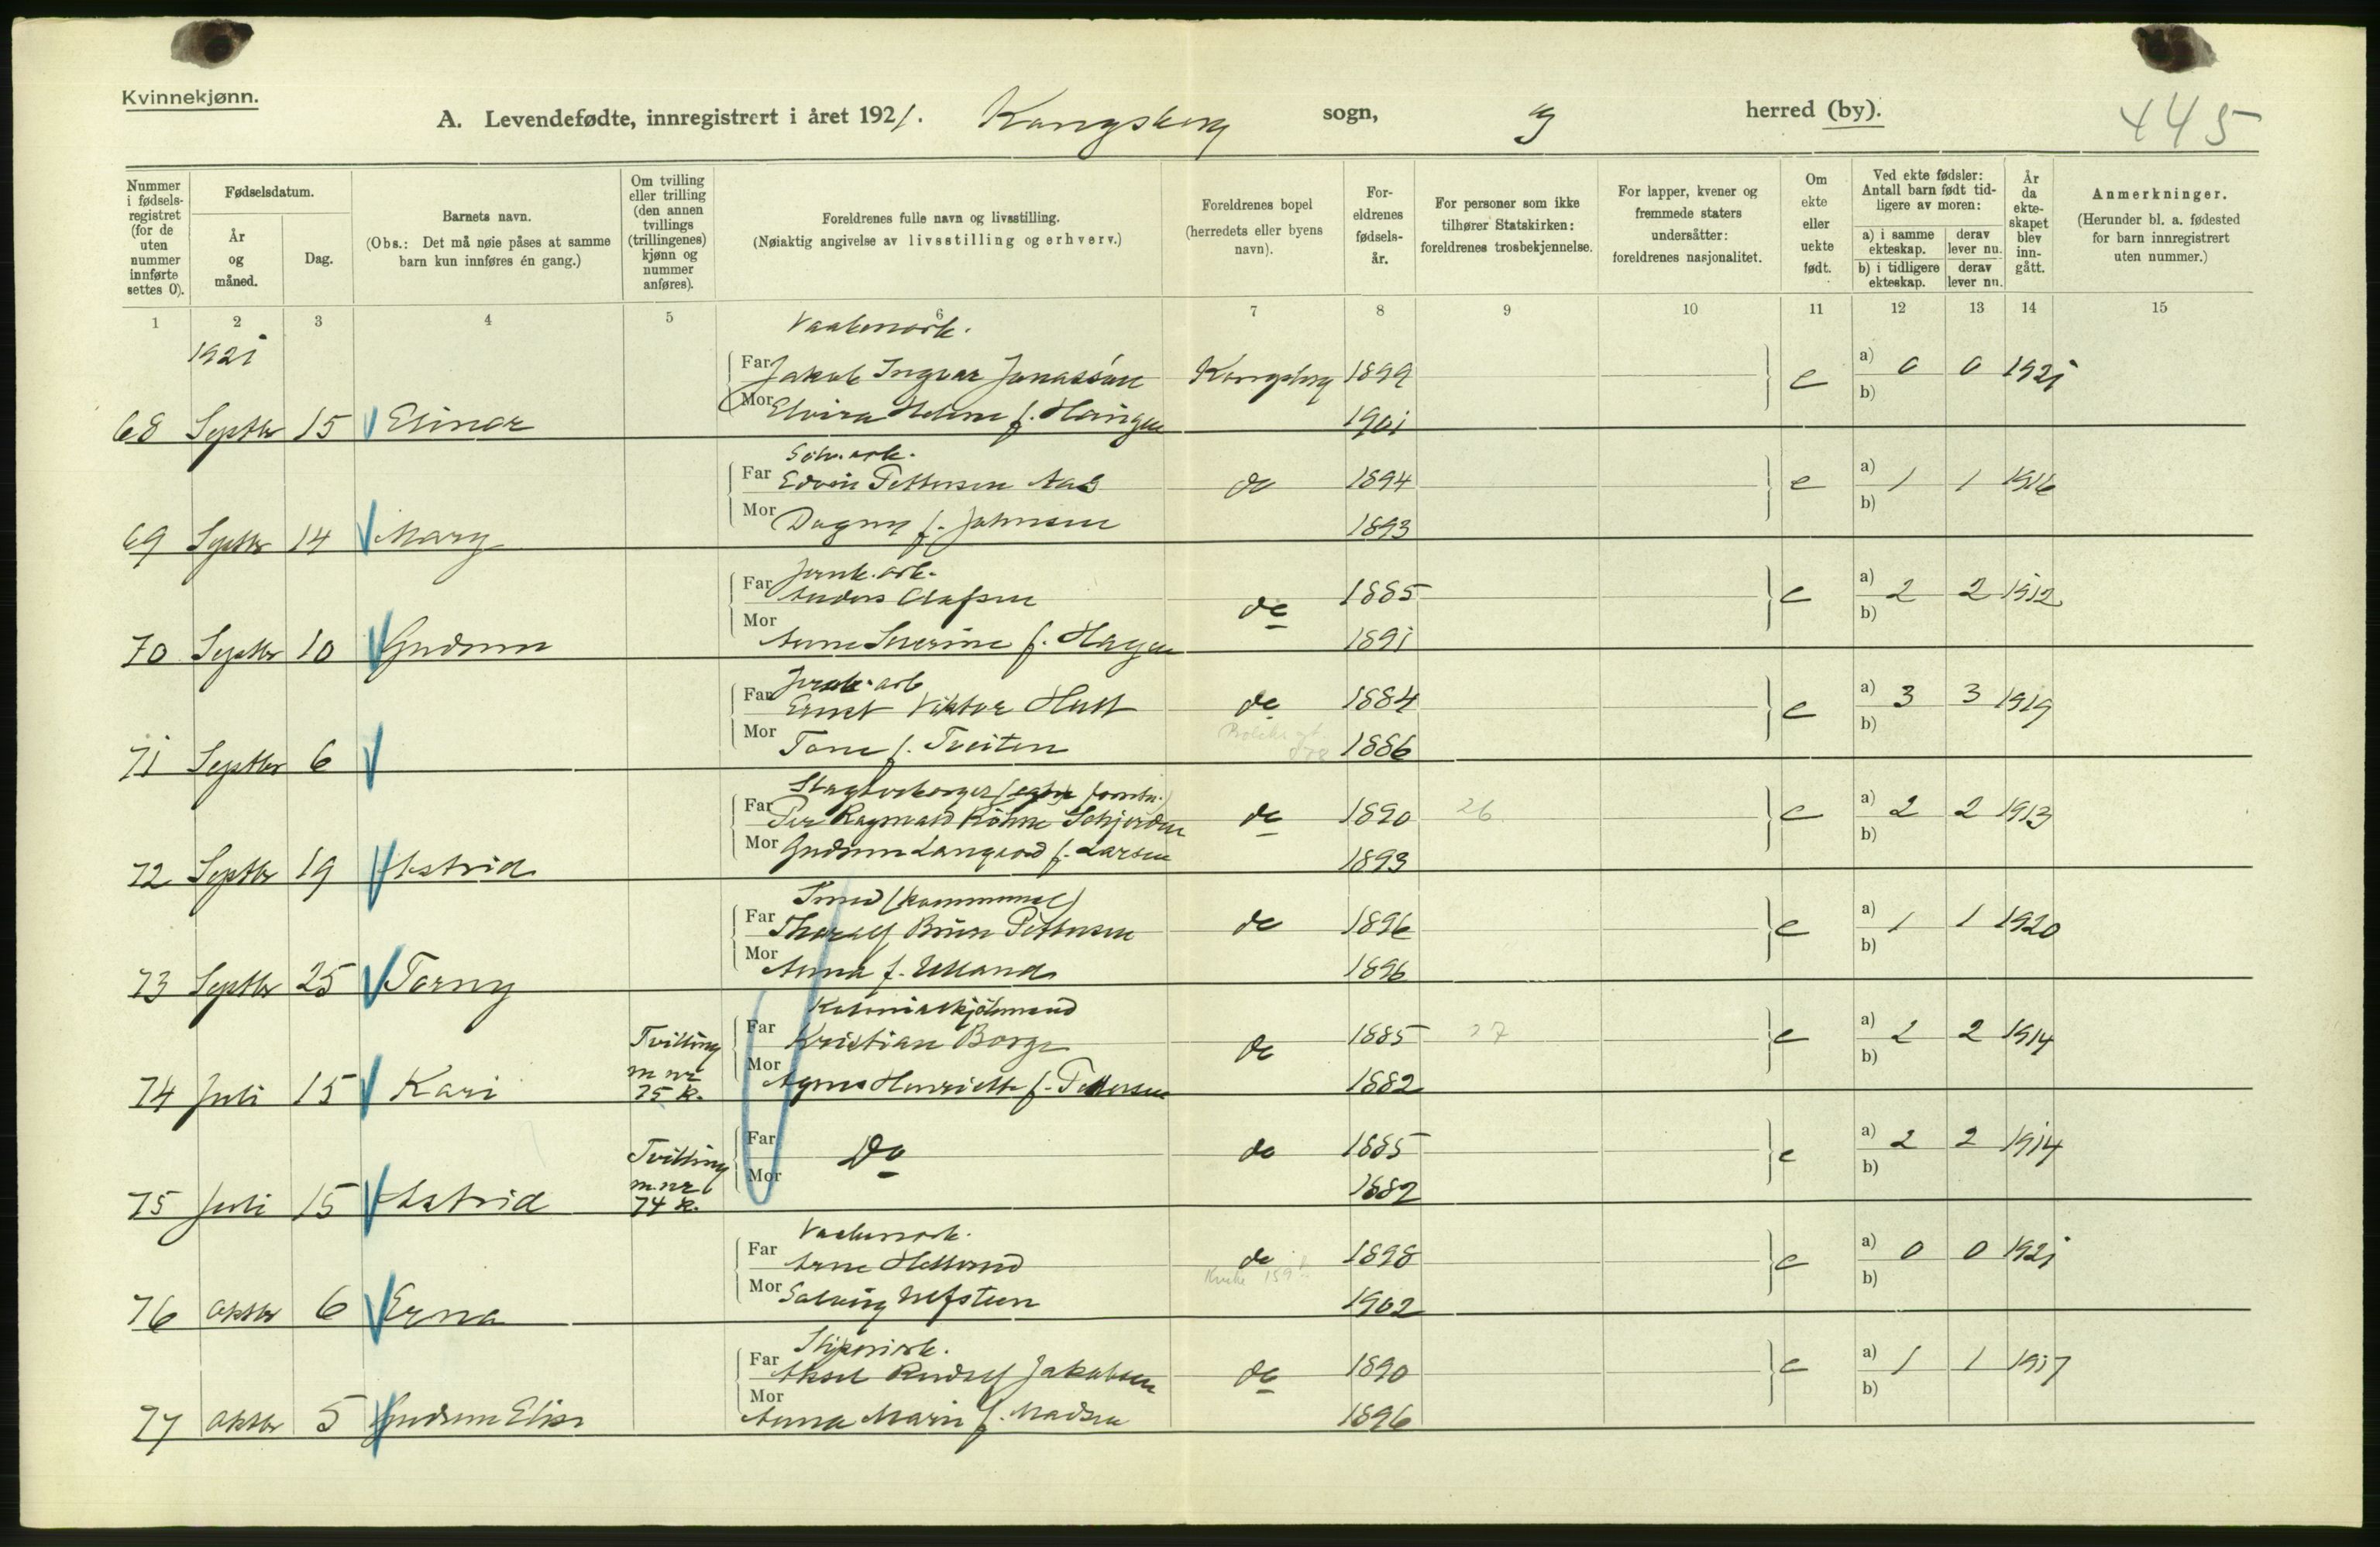 Kvinnekjønn.
A. Levendefødte, innregistrert i året 1921. Kongsberg sogn, herred (by).
445
Nummer i fødselsregistret (for de uten nummer innførte settes 0).
Fødselsdatum.
År og måned.
Dag.
Barnets navn.
(Obs.: Det må nøie påses at samme barn kun innføres én gang.)
Om tvilling eller trilling (den annen tvillings (trillingenes) kjønn og nummer anføres).
Foreldrenes fulle navn og livsstilling.
(Nøiaktig angivelse av livsstilling og erhverv.)
Foreldrenes bopel (herredets eller byens navn).
Foreldrenes fødselsår.
For personer som ikke tilhører Statskirken: foreldrenes trosbekjennelse.
For lapper, kvener og fremmede staters undersåtter: foreldrenes nasjonalitet.
Om ekte eller uekte født.
Ved ekte fødsler: Antall barn født tidligere av moren:
a) i samme ekteskap. derav lever nu.
b) i tidligere ekteskap. derav lever nu.
År da ekteskapet blev inngått.
Anmerkninger.
(Herunder bl. a. fødested for barn innregistrert uten nummer.)
1 2 3 4 5 6 7 8 9 10 11 12 13 14 15
1921
Vaabenarb.
Far Jakob Ingvar Jonassen Kongsberg 1899 e a) 0 0 1921
Mor Elvira Helene f. Haugen 1901 b)
68 Septbr 15 Elinor
Sølv.arb.
Far Edvin Pettersen Aas do 1894 e a) 1 1 1916
Mor Dagny f. Johnsen 1893 b)
69 Septbr 14 Mary
Jernb.arb.
Far Anders Olafsen do 1885 e a) 2 2 1912
Mor Anne Severine f. Hagen 1891 b)
70 Septbr 10 Gudrun
Jernb.arb
Far Ernst Viktor Hult do 1884 e a) 3 3 1919
Mor Tone f. Tveiten 1886 b)
71 Septbr 6
Far Per Ragnvald do 1890 26 e a) 2 2 1913
Mor Gudrun Langaard f. Larsen 1893 b)
72 Septbr 19 Astrid
(kommunal)
Far Thoralf Bruun Pettersen do 1896 e a) 1 1 1920
Mor Anna f. Ulland 1896 b)
73 Septbr 25 Torny
Kolonialkjøbmand
Far Kristian Borge do 1885 27 e a) 2 2 1914
Mor Agnes Henriette f. Pettersen 1882 b)
74 Juli 15 Kari Tvilling m nr 75 k.
Far Do do 1885 e a) 2 2 1914
Mor 1882 b)
75 Juli 15 Astrid Tvilling m. nr 74 k.
Vaabenarb.
Far Arne Hellerud do 1898 e a) 0 0 1921
Mor Solveig Ulfsteen 1902 b)
76 Oktbr 6 Erna
Far Aksel Rudolf Jakobsen do 1890 e a) 1 1 1917
Mor Anna Marie f. Madsen 1896 b)
77 Oktbr 5 Gudrun Elise